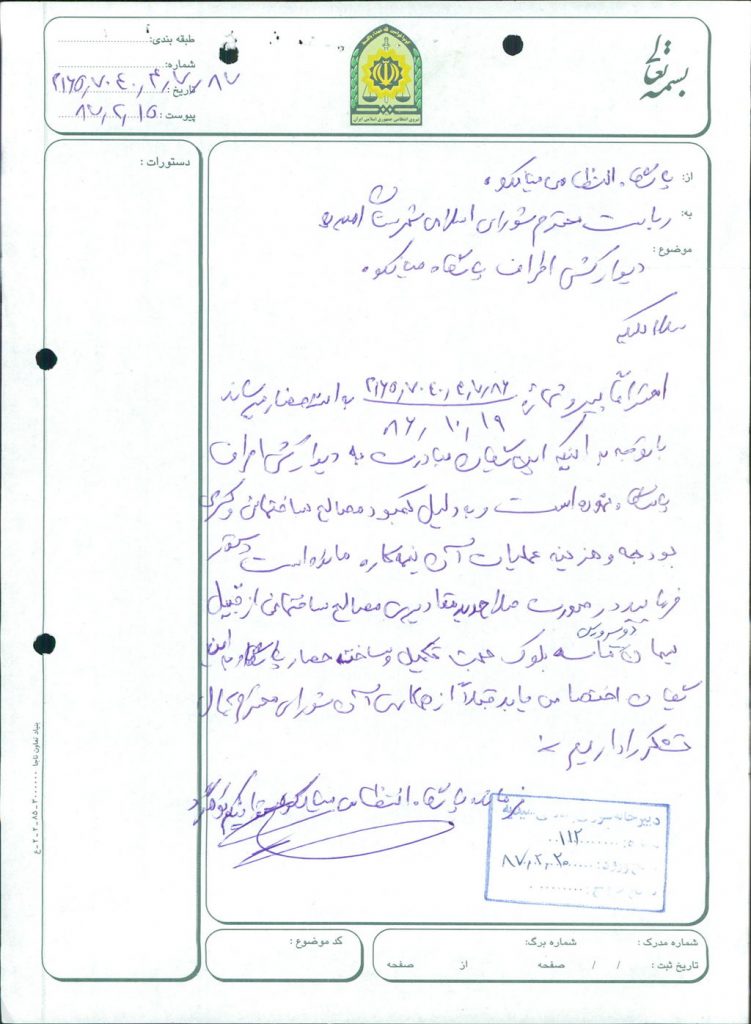 بسمه تعالی
طبقه بندی:
شماره: ۲۱۶۵/۷۰۴۰/۴/۷/۸۷
تاریخ: ۸۷/۲/۱۵
پیوست:
نیروی انتظامی جمهوری اسلامی ایران
دستورات:
از: پاسگاه انتظامی میانکوه
به: ریاست محترم شورای اسلامی شهرستان امیدیه
موضوع: دیوارکشی اطراف پاسگاه میانکوه
سلام علیکم
احتراماً پیرو شماره ۲۱۶۵/۷۰۴۰/۴/۷/۸۶ به استحضار میرساند
۸۶/۱۰/۱۹
با توجه به اینکه این یگان مبادرت به دیوارکشی اطراف
پاسگاه نموده است و به دلیل کمبود مصالح ساختمانی و کسری
بودجه و هزینه عملیات آن نیمه کاره مانده است دستور
فرمایید در صورت صلاحدید مقادیری مصالح ساختمانی از قبیل
سیمان ماسه بلوک جهت تکمیل و ساخت حصار پاسگاه به این
دو سرویس
یگان اختصاص یابد قبلاً از همکاری آن شورای محترم کمال
تشکر را داریم
فرمانده پاسگاه انتظامی میانکوه
دبیرخانه شورای اسلامی امیدیه
۱۱۲
۸۷/۲/۲۰
شماره مدرک:
شماره برگ:
تاریخ ثبت: / /
صفحه از صفحه
کد موضوع:
بنیاد تعاون ناجا